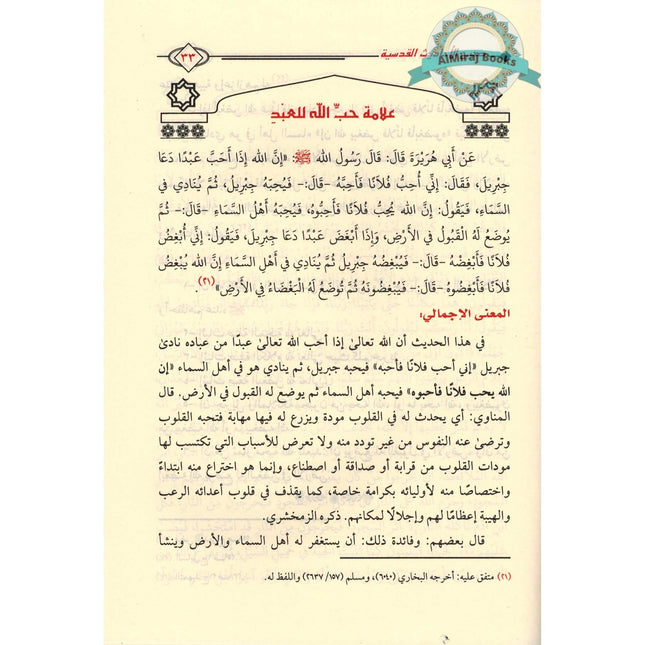 ٣٣
القدسية
AlMiraj Books
علامة حبِّ اللَّه للعبدِ
عَنْ أَبِي هُرَيْرَةَ قَالَ: قَالَ رَسُولُ اللهِ ﷺ: «إِنَّ اللهَ إِذَا أَحَبَّ عَبْدًا دَعَا
جِبْرِيلَ، فَقَالَ: إِنِّي أُحِبُّ فُلَانًا فَأَحِبَّهُ –قَالَ:– فَيُحِبُّهُ جِبْرِيلُ، ثُمَّ يُنَادِي فِي
السَّمَاءِ، فَيَقُولُ: إِنَّ اللهَ يُحِبُّ فُلَانًا فَأَحِبُّوهُ، فَيُحِبُّهُ أَهْلُ السَّمَاءِ –قَالَ:– ثُمَّ
يُوضَعُ لَهُ الْقَبُولُ فِي الأَرْضِ، وَإِذَا أَبْغَضَ عَبْدًا دَعَا جِبْرِيلَ، فَيَقُولُ: إِنِّي أُبْغِضُ
فُلَانًا فَأَبْغِضْهُ –قَالَ:– فَيُبْغِضُهُ جِبْرِيلُ ثُمَّ يُنَادِي فِي أَهْلِ السَّمَاءِ إِنَّ اللهَ يُبْغِضُ
فُلَانًا فَأَبْغِضُوهُ –قَالَ:– فَيُبْغِضُونَهُ ثُمَّ تُوضَعُ لَهُ الْبَغْضَاءُ فِي الأَرْضِ»(٢١).
المعنى الإجمالي:
في هذا الحديث أن الله تعالىٰ إذا أحب الله تعالىٰ عبدًا من عباده نادىٰ
جبريل «إني أحب فلانًا فأحبه» فيحبه جبريل، ثم ينادي هو في أهل السماء «إن
الله يحب فلانًا فأحبوه» فيحبه أهل السماء ثم يوضع له القبول في الأرض. قال
المناوي: أي يحدث له في القلوب مودة ويزرع له فيها مهابة فتحبه القلوب
وترضىٰ عنه النفوس من غير تودد منه ولا تعرض للأسباب التي تكتسب لها
مودات القلوب من قرابة أو صداقة أو اصطناع، وإنما هو اختراع منه ابتداءً
واختصاصًا منه لأوليائه بكرامة خاصة، كما يقذف في قلوب أعدائه الرعب
والهيبة إعظامًا لهم وإجلالًا لمكانهم. ذكره الزمخشري.
قال بعضهم: وفائدة ذلك: أن يستغفر له أهل السماء والأرض وينشأ
(٢١) متفق عليه: أخرجه البخاري (٦٠٤٠)، ومسلم (١٥٧/ ٢٦٣٧) واللفظ له.